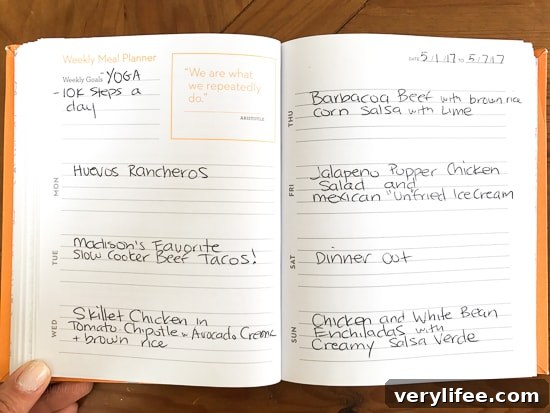 Weekly Meal Planner
Weekly Goals YOGA
- 10K Steps a
day
"We are what
we repeatedly
do."
ARISTOTLE
MON
Huevos Rancheros
TUE
Madison's Favorite
Slow Cooker Beef Tacos!
WED
Skillet Chicken in
Tomato Chipotle + Avocado Creme
+ brown rice
DATE 5/1/17 TO 5/7/17
THU
Barbacoa Beef with brown rice
corn salsa with Lime
FRI
Jalapeno Popper Chicken
Salad and
mexican "Unfried Ice Cream
SAT
Dinner Out
SUN
Chicken and White Bean
Enchiladas with
Creamy Salsa Verde
verylifee.com